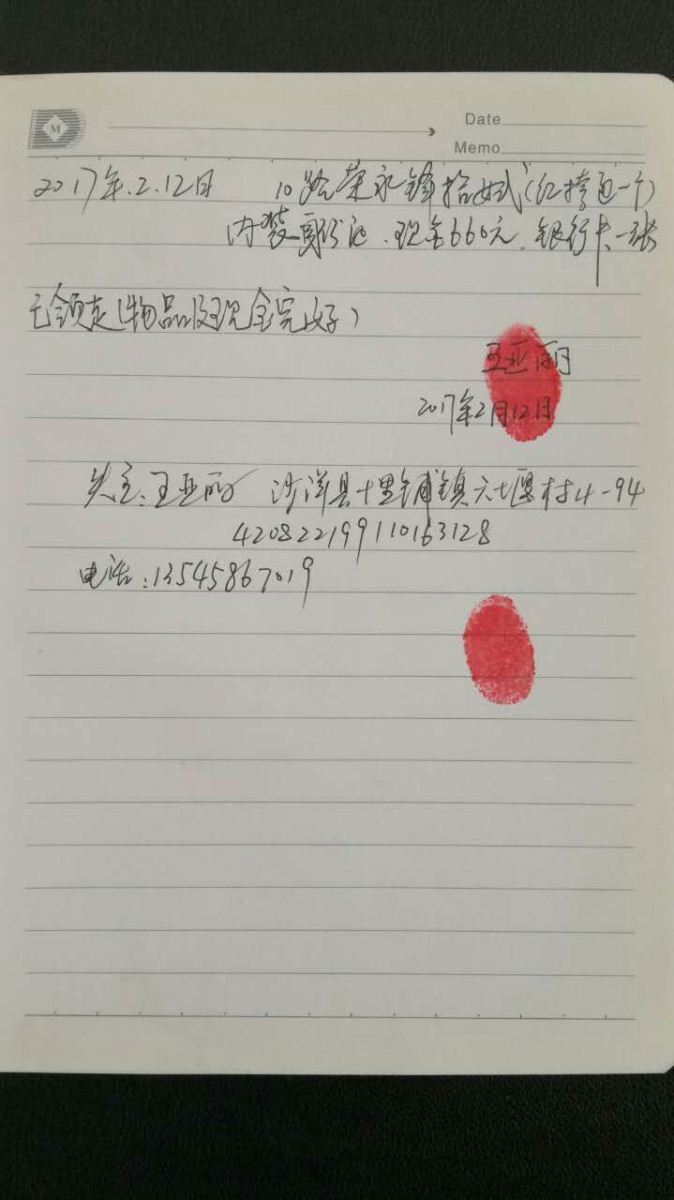 M
Date
Memo
2017年.2.12日 10路 永锋拾 (红挎包一个)
内装 身份证、现金660元、银行卡一张
已领走(物品及现金完好)
王亚丽
2017年2月12日
失主:王亚丽 沙洋县十里铺镇 村4-94
420822199110163128
电话:13545867019